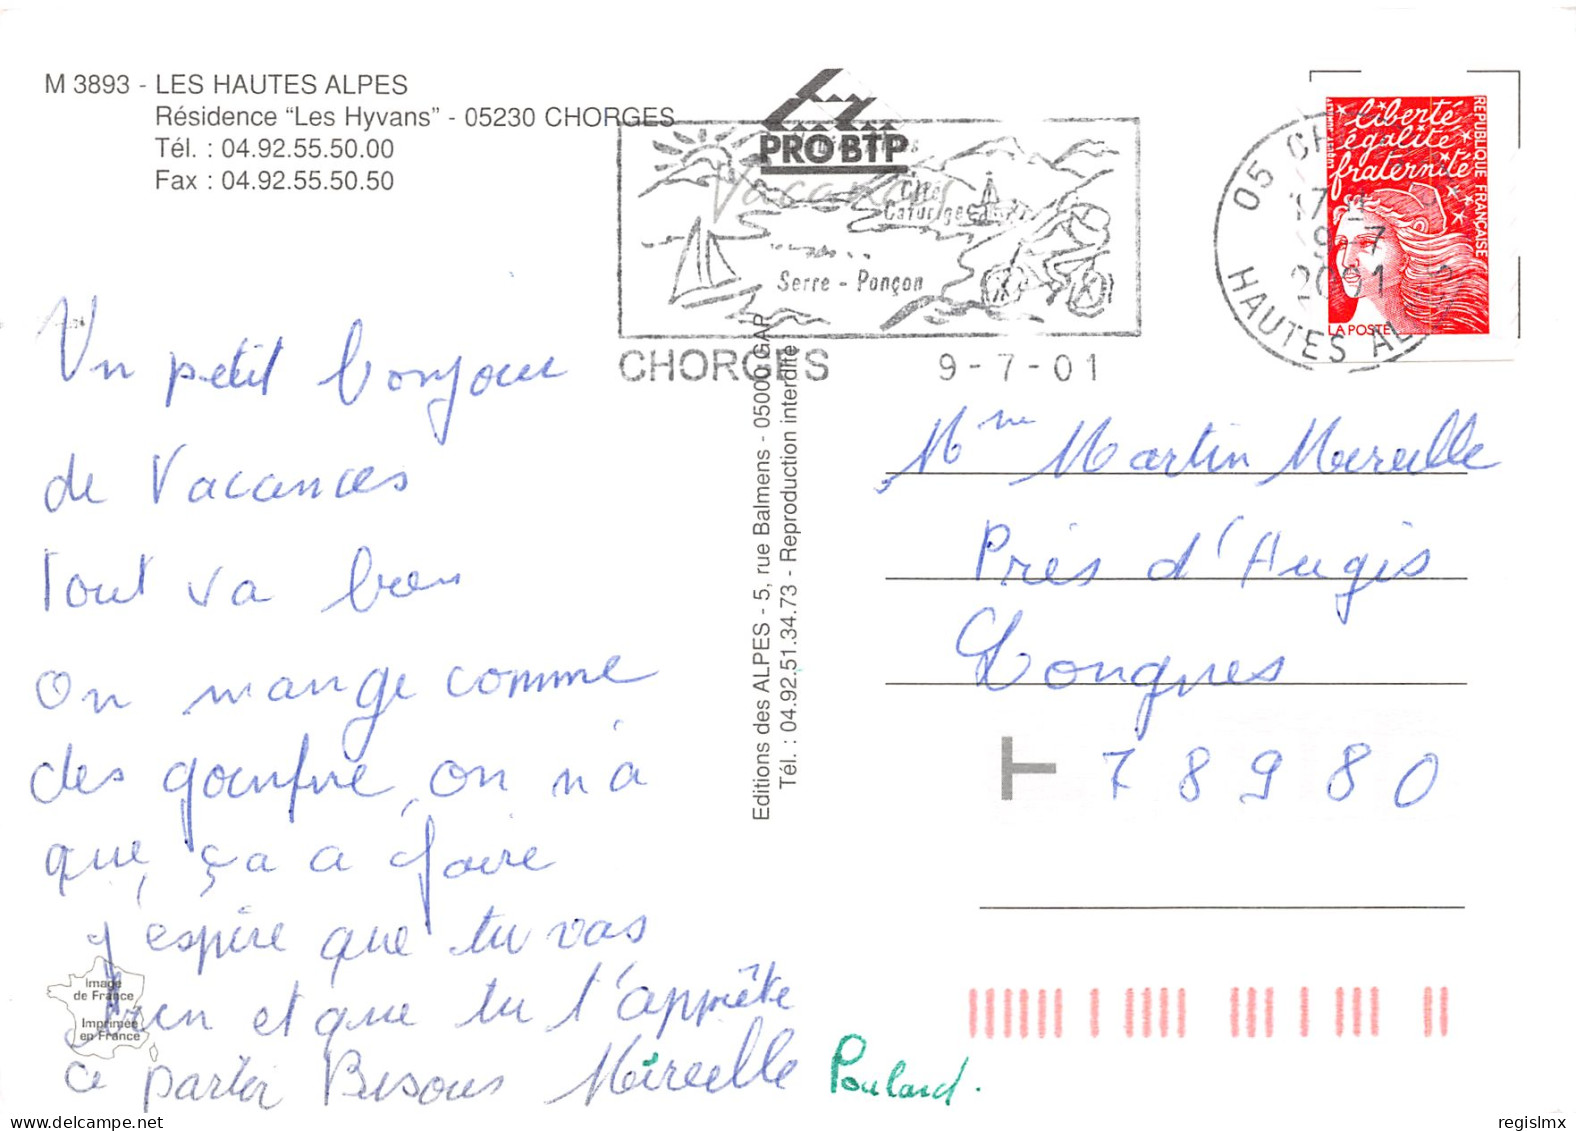 M 3893 - LES HAUTES ALPES
Résidence "Les Hyvans" - 05230 CHORGES
Tél. : 04.92.55.50.00
Fax : 04.92.55.50.50
PRO BTP
Vacances
Serre - Ponçon
CHORGES 9-7-01
05 CH
17
9-7
2001
HAUTES AL
liberté
égalité
fraternité
REPUBLIQUE FRANÇAISE
LA POSTE
Un petit bonjour
de Vacances
Tout va bien
On mange comme
des gounfre, on n'a
que ça a faire
j'espère que tu vas
bien et que tu t'apprête
a partir Bisous Mireille Poulard.
Image
de France
Imprimée
en France
Editions des ALPES - 5, rue Balmens - 05000 GAP
Tél. : 04.92.51.34.73 - Reproduction interdite
Mme Martin Mereille
Près d'Augis
Longnes
T 78980
regislmx